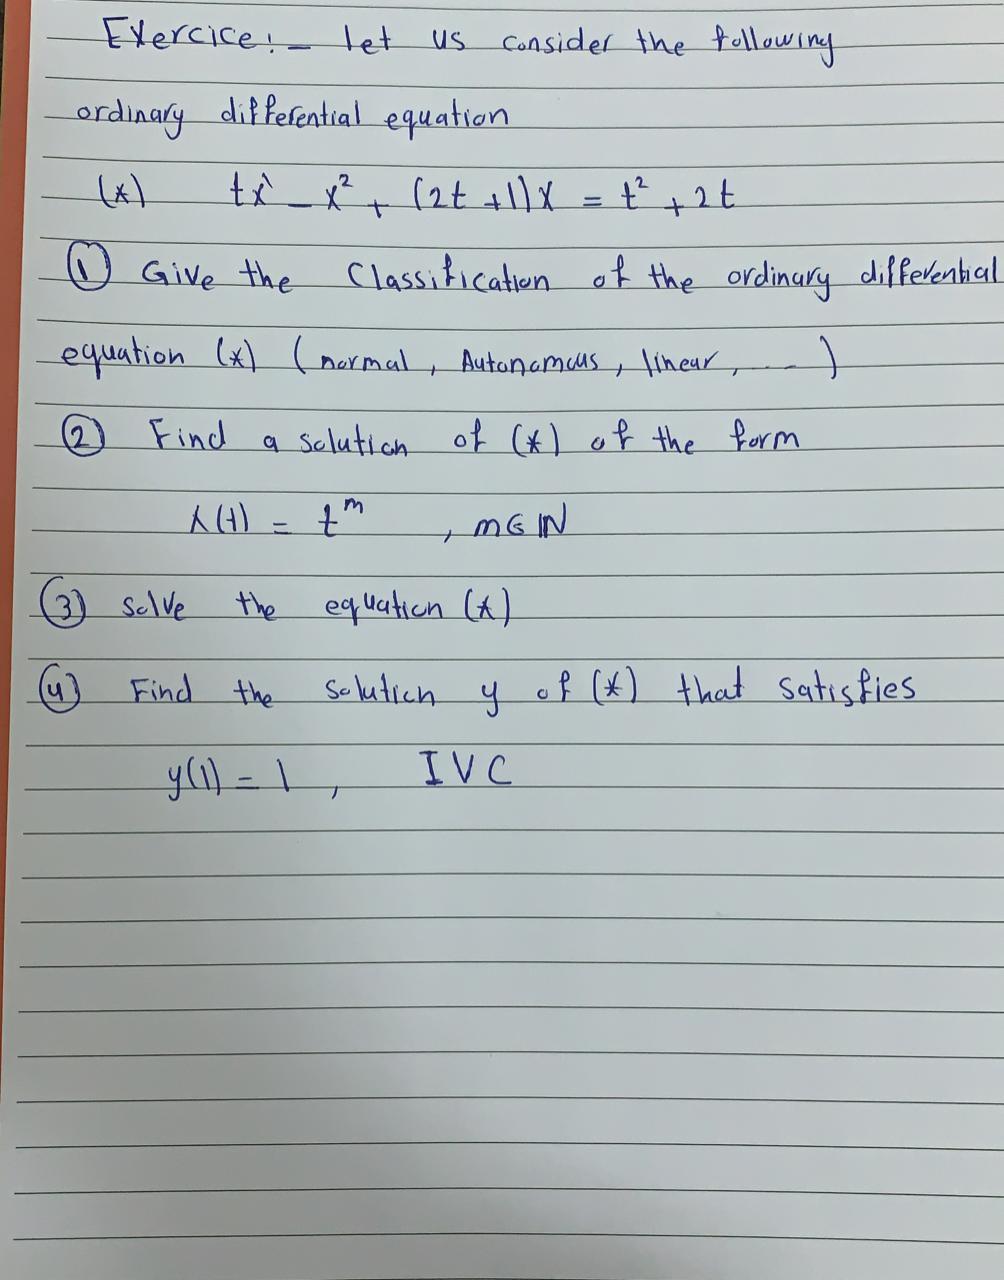 Exercice:- let us consider the following
ordinary differential equation
(*) tx' - x² + (2t+1)x = t² + 2t
① Give the Classification of the ordinary differential
equation (*) (normal, Autonomous, linear, ---)
② Find a solution of (*) of the form
x(t) = t^m , m ∈ ℕ
③ solve the equation (*)
④ Find the solution y of (*) that satisfies
y(1) = 1 , IVC